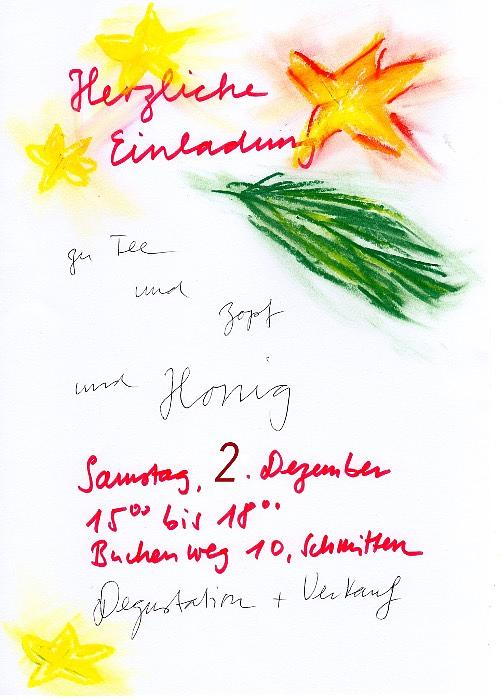 Herzliche
Einladung
zu Tee
und
Zopf
und Honig
Samstag, 2. Dezember
15⁰⁰ bis 18⁰⁰
Buchenweg 10, Schmitten
Degustation + Verkauf